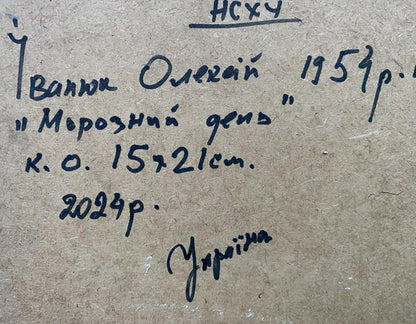 НСХУ
Іванюк Олексій 1954р.н
"Морозний день"
к. о. 15х21см.
2024р.
Україна